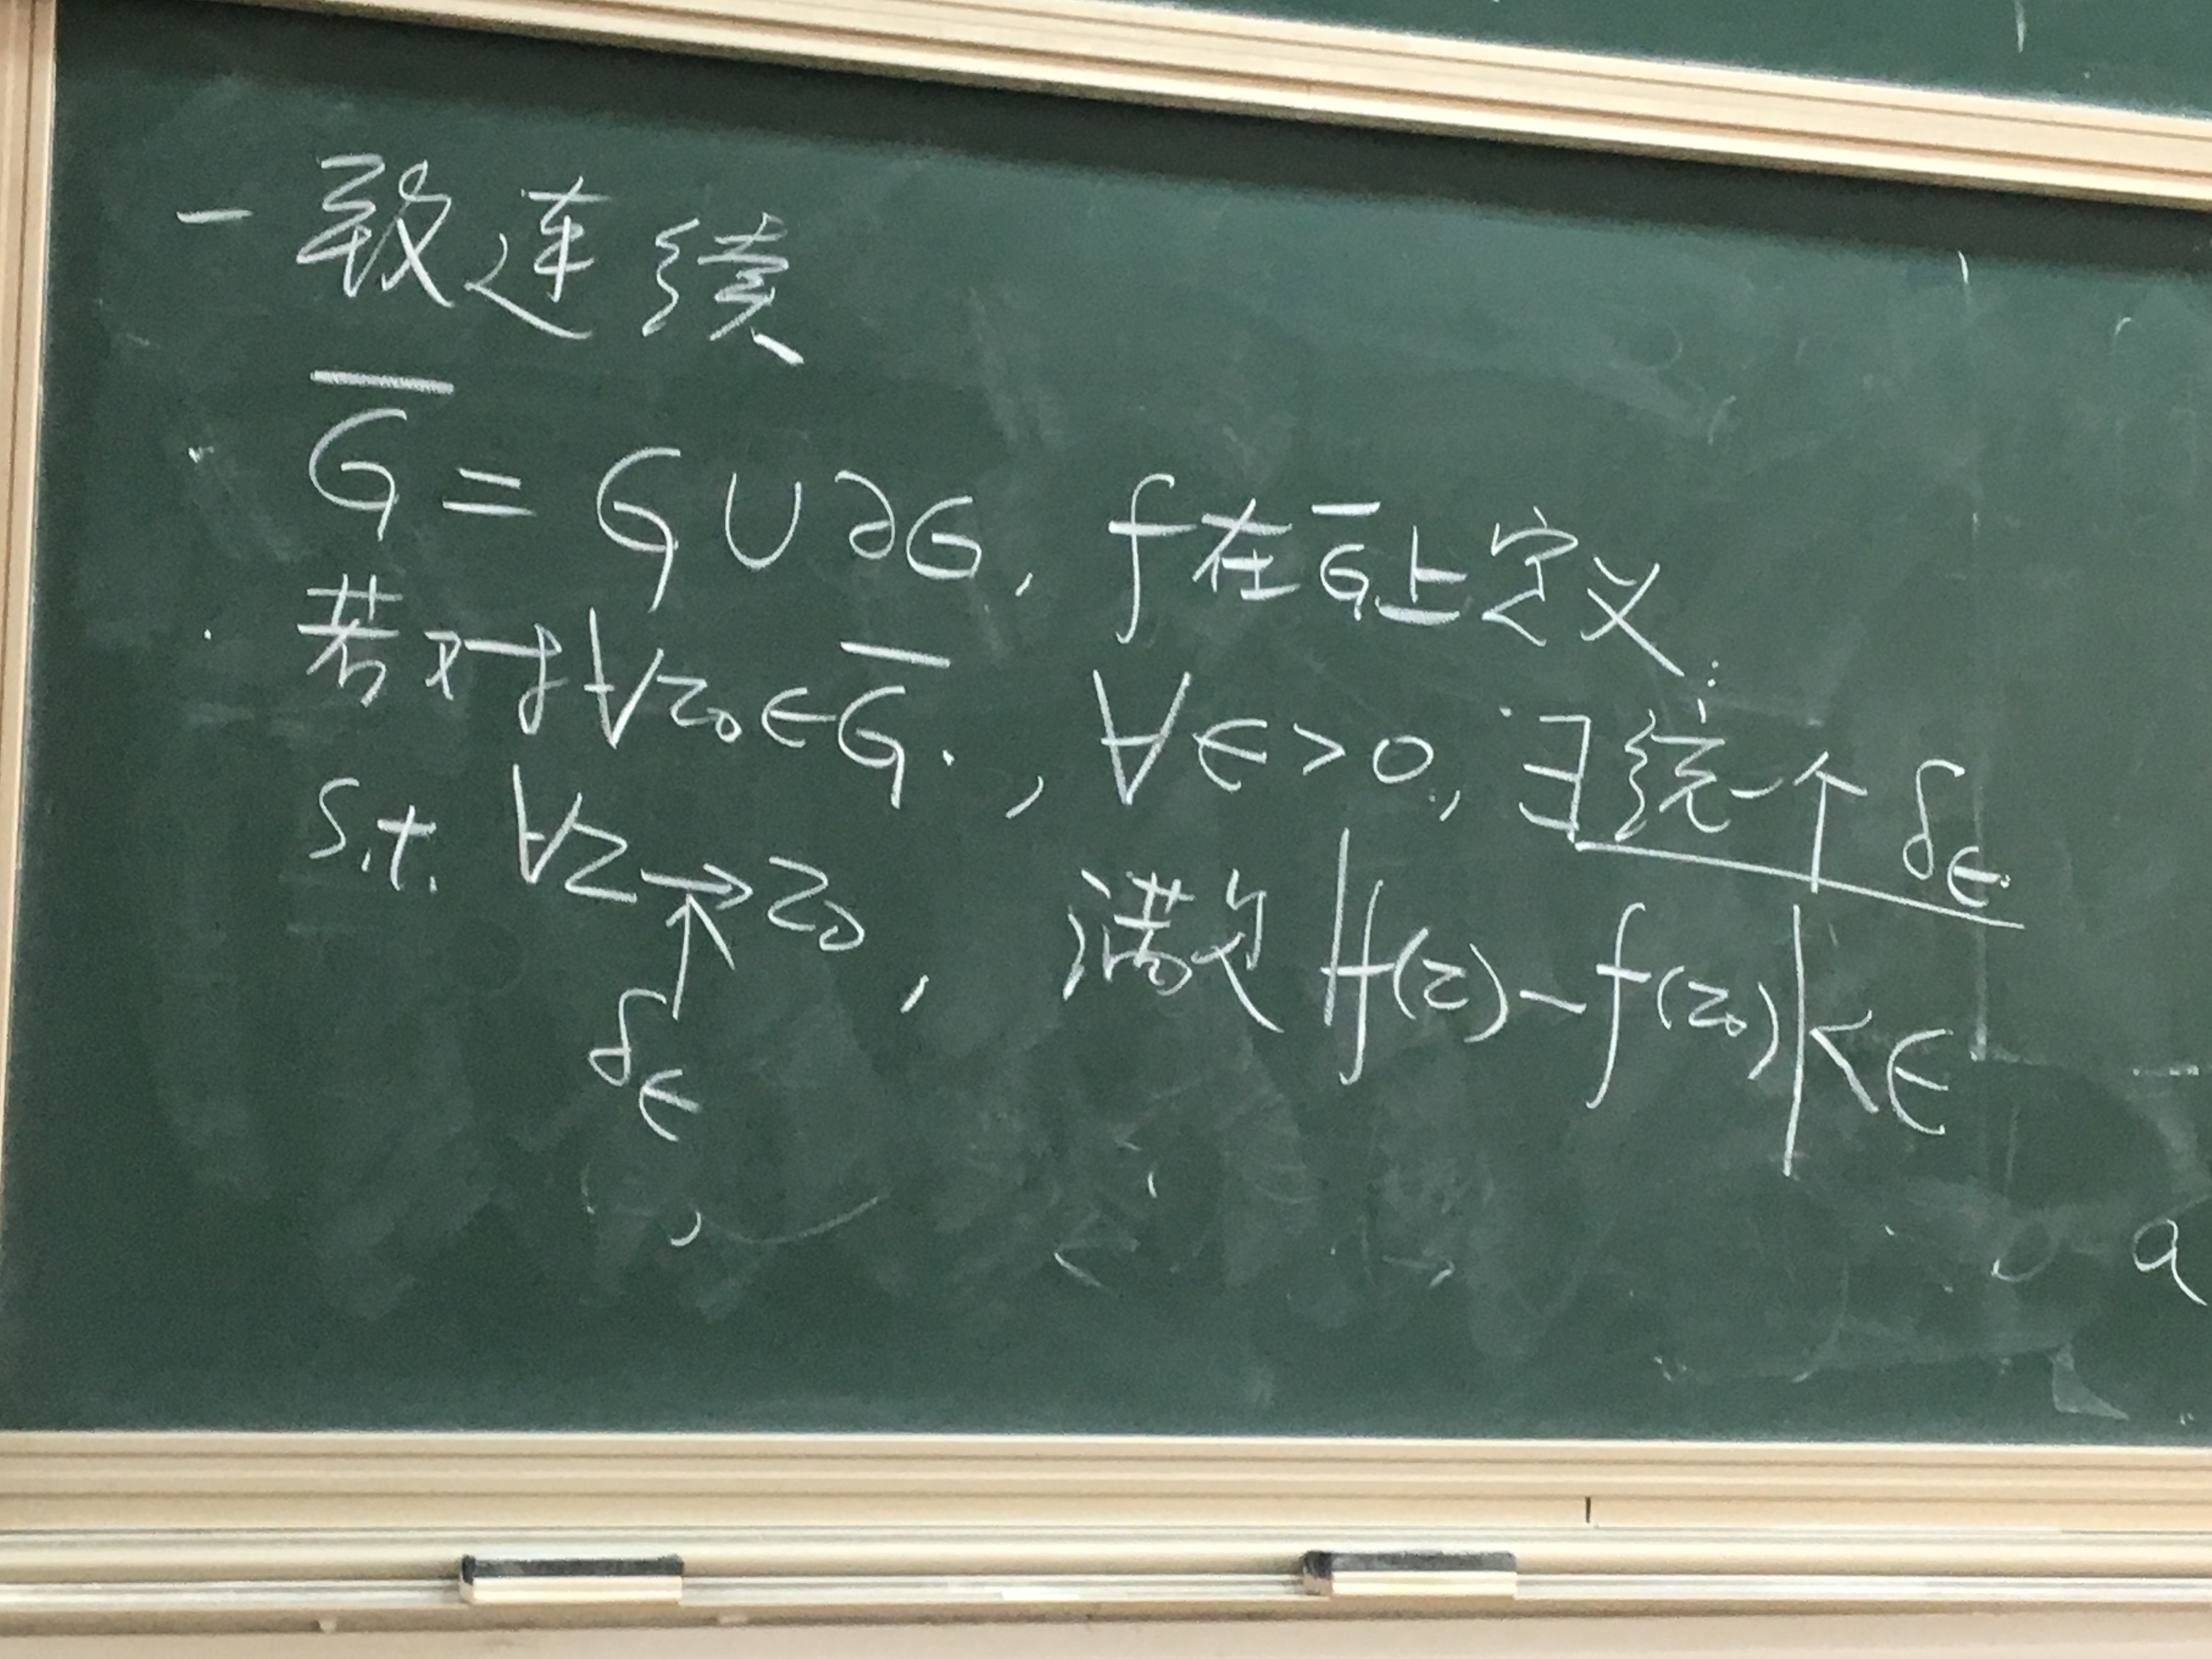 一致连续
G̅ = G ∪ ∂G, f在G̅上定义.
若对∀z₀∈G̅., ∀ϵ>0, ∃统一个 δ_ϵ
s.t. ∀z→z₀, 满足 |f(z)-f(z₀)|<ϵ
↑
δ_ϵ
a